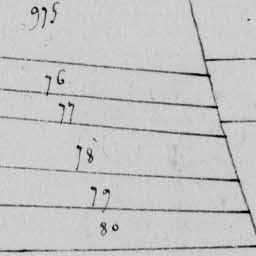 975
76
77
78
79
80